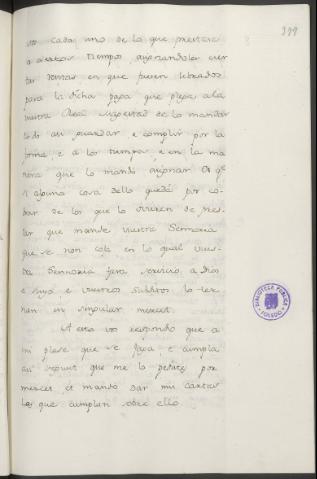 399
cada uno de lo que prestare
a ciertos tiempos asignandoles cier
tas penas en que fuesen
para la dicha paga que plega a la
vuestra Real Magestad de lo mandar
todo asi guardar, e complir por la
forma, e a los tiempos, e en la ma
nera que lo mandó asignar. Or qᵉ
si alguna cosa dello quedó por co
brar de los que lo ovieren de pres
tar que mande vuestra Sennoria
que se non coja en lo qual vues
tra Sennoria fara servicio a Dios
e suyo, e vuestros subditos lo ter
nan en singular merced.
A esto vos respondo que a
mi plase que se faga, e cumpla
asi segunt que me lo pedistes por
merced et mando dar mis cartas
las que cumplan sobre ello
BIBLIOTECA PUBLICA
TOLEDO